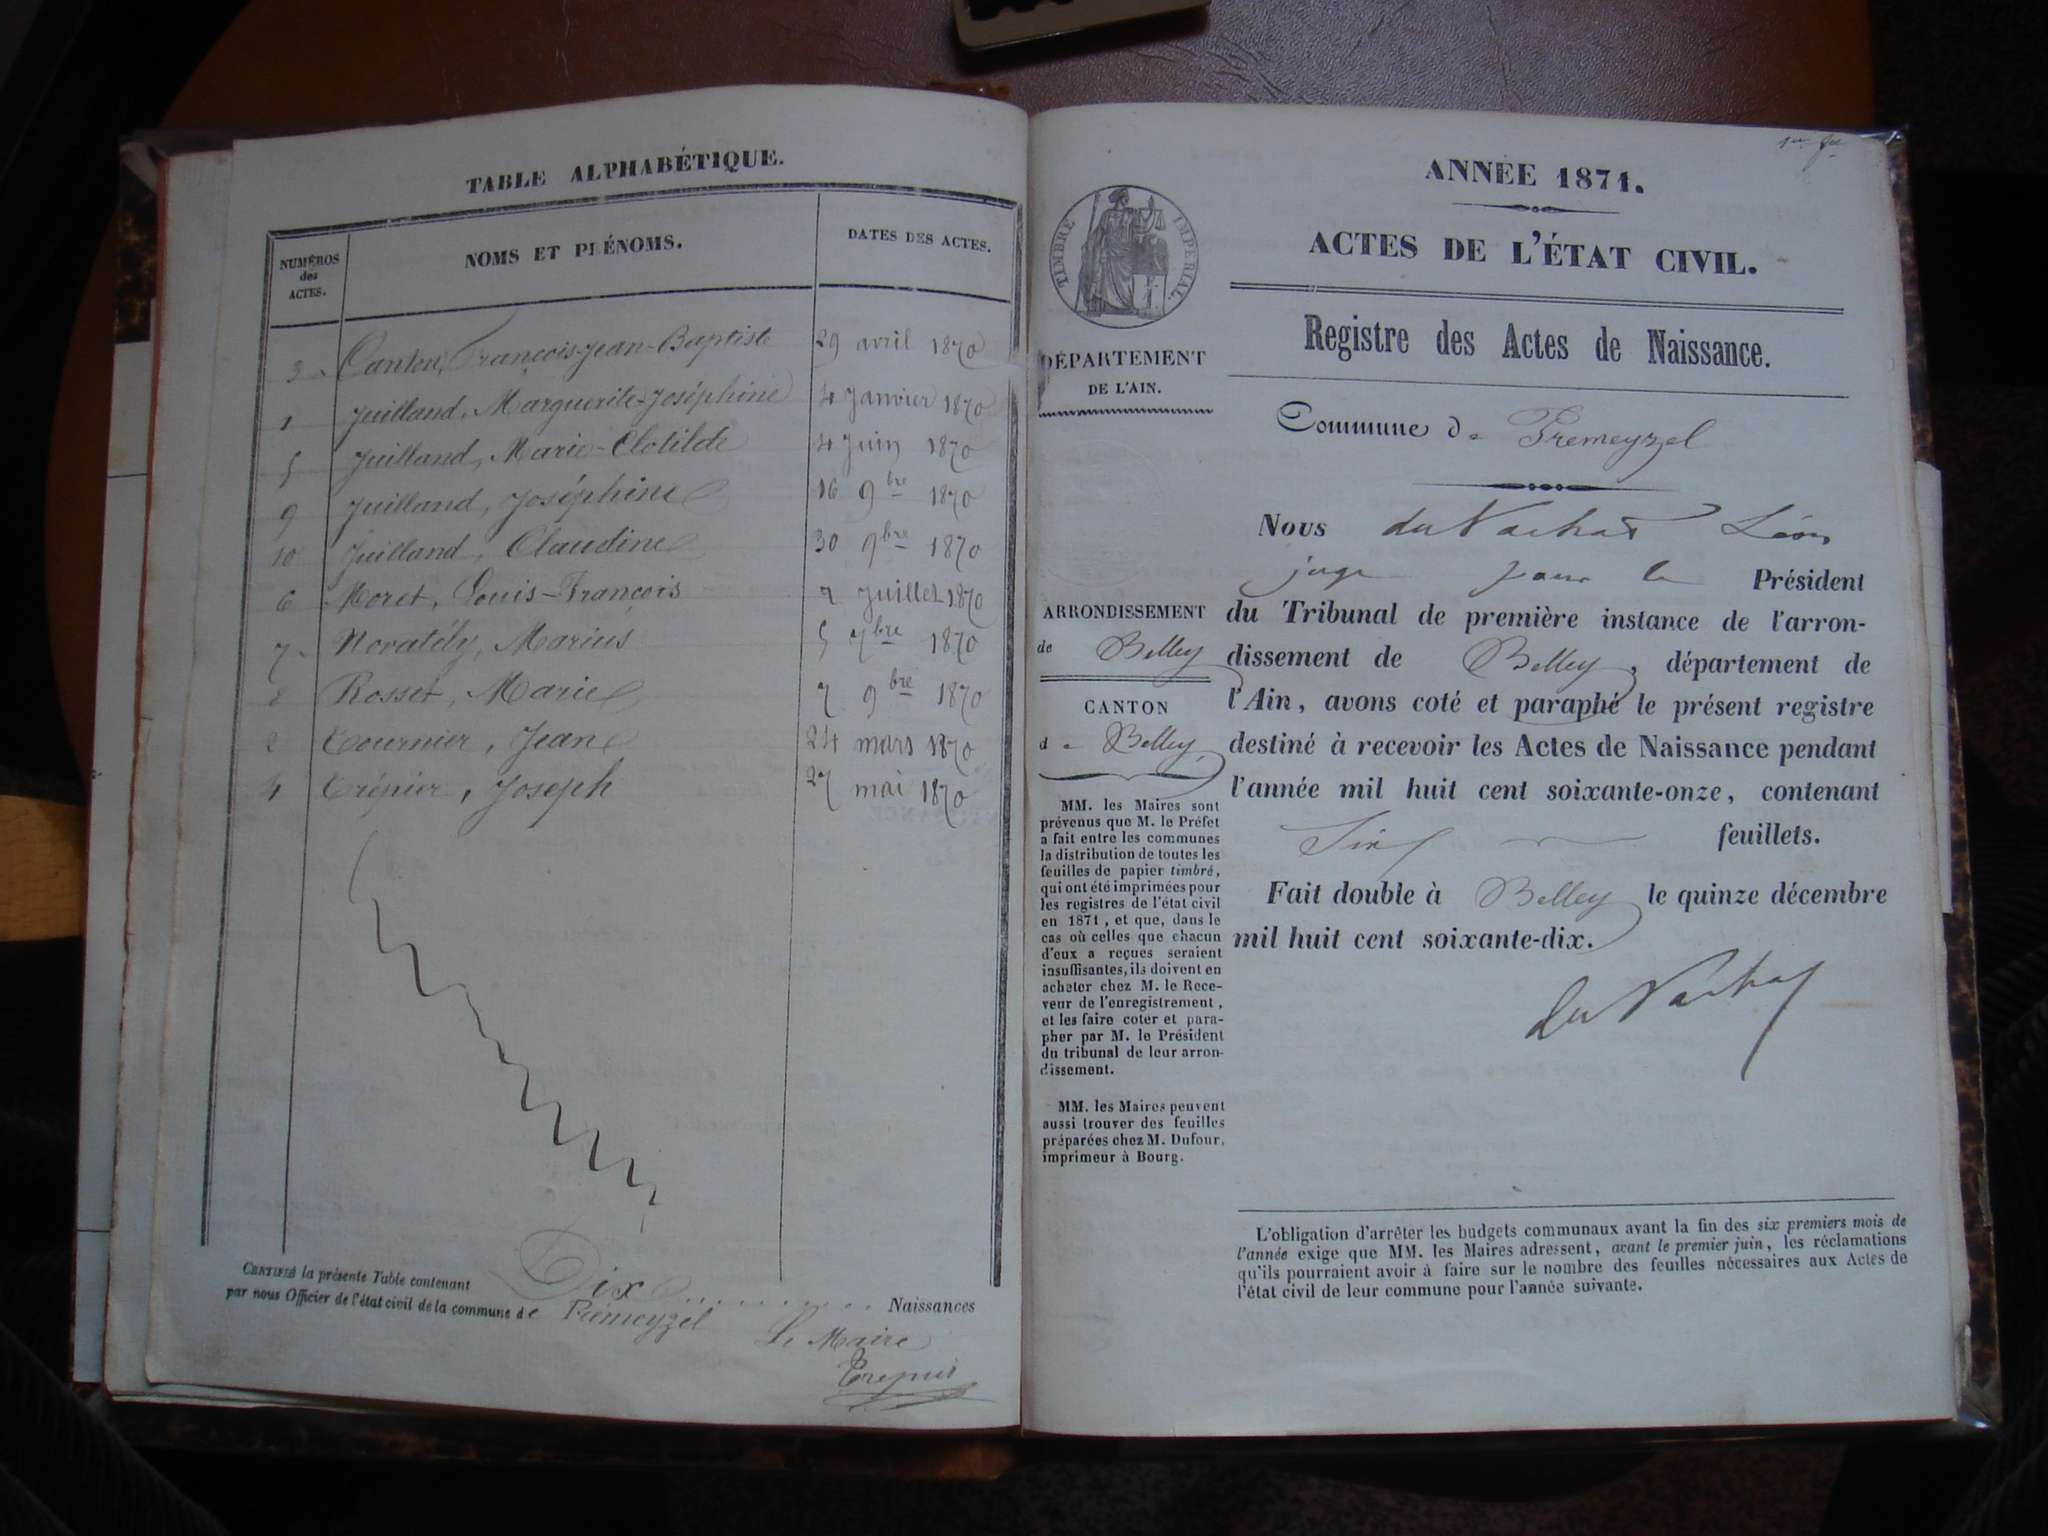 TABLE ALPHABÉTIQUE.
NUMÉROS des ACTES. NOMS ET PRÉNOMS. DATES DES ACTES.
3 Canton, François-Jean-Baptiste 29 avril 1870
1 Juilland, Marguerite-Joséphine 4 Janvier 1870
5 Juilland, Marie-Clotilde 4 Juin 1870
9 Juilland, Joséphine 16 9bre 1870
10 Juilland, Claudine 30 9bre 1870
6 Moret, Louis-François 2 Juillet 1870
7 Novatély, Marius 5 7bre 1870
Rosset, Marie 7 9bre 1870
2 Tournier, Jean 24 mars 1870
4 Trépier, Joseph 27 mai 1870
CERTIFIÉ la présente Table contenant Dix Naissances
par nous Officier de l'état civil de la commune de Prémeyzel
Le Maire
Trepier
ANNÉE 1871.
ACTES DE L'ÉTAT CIVIL.
TIMBRE IMPÉRIAL.
Registre des Actes de Naissance.
DÉPARTEMENT
DE L'AIN.
Commune de Premeyzel
Nous du Vachat Léon
juge pour le Président
du Tribunal de première instance de l'arron-
dissement de Belley, département de
l'Ain, avons coté et paraphé le présent registre
destiné à recevoir les Actes de Naissance pendant
l'année mil huit cent soixante-onze, contenant
Six feuillets.
Fait double à Belley le quinze décembre
mil huit cent soixante-dix.
du Vachat
ARRONDISSEMENT
de Belley
CANTON
de Belley
MM. les Maires sont
prévenus que M. le Préfet
a fait entre les communes
la distribution de toutes les
feuilles de papier timbré,
qui ont été imprimées pour
les registres de l'état civil
en 1871, et que, dans le
cas où celles que chacun
d'eux a reçues seraient
insuffisantes, ils doivent en
acheter chez M. le Rece-
veur de l'enregistrement,
et les faire coter et para-
pher par M. le Président
du tribunal de leur arron-
dissement.
MM. les Maires peuvent
aussi trouver des feuilles
préparées chez M. Dufour,
imprimeur à Bourg.
L'obligation d'arrêter les budgets communaux avant la fin des six premiers mois de
l'année exige que MM. les Maires adressent, avant le premier juin, les réclamations
qu'ils pourraient avoir à faire sur le nombre des feuilles nécessaires aux Actes de
l'état civil de leur commune pour l'année suivante.